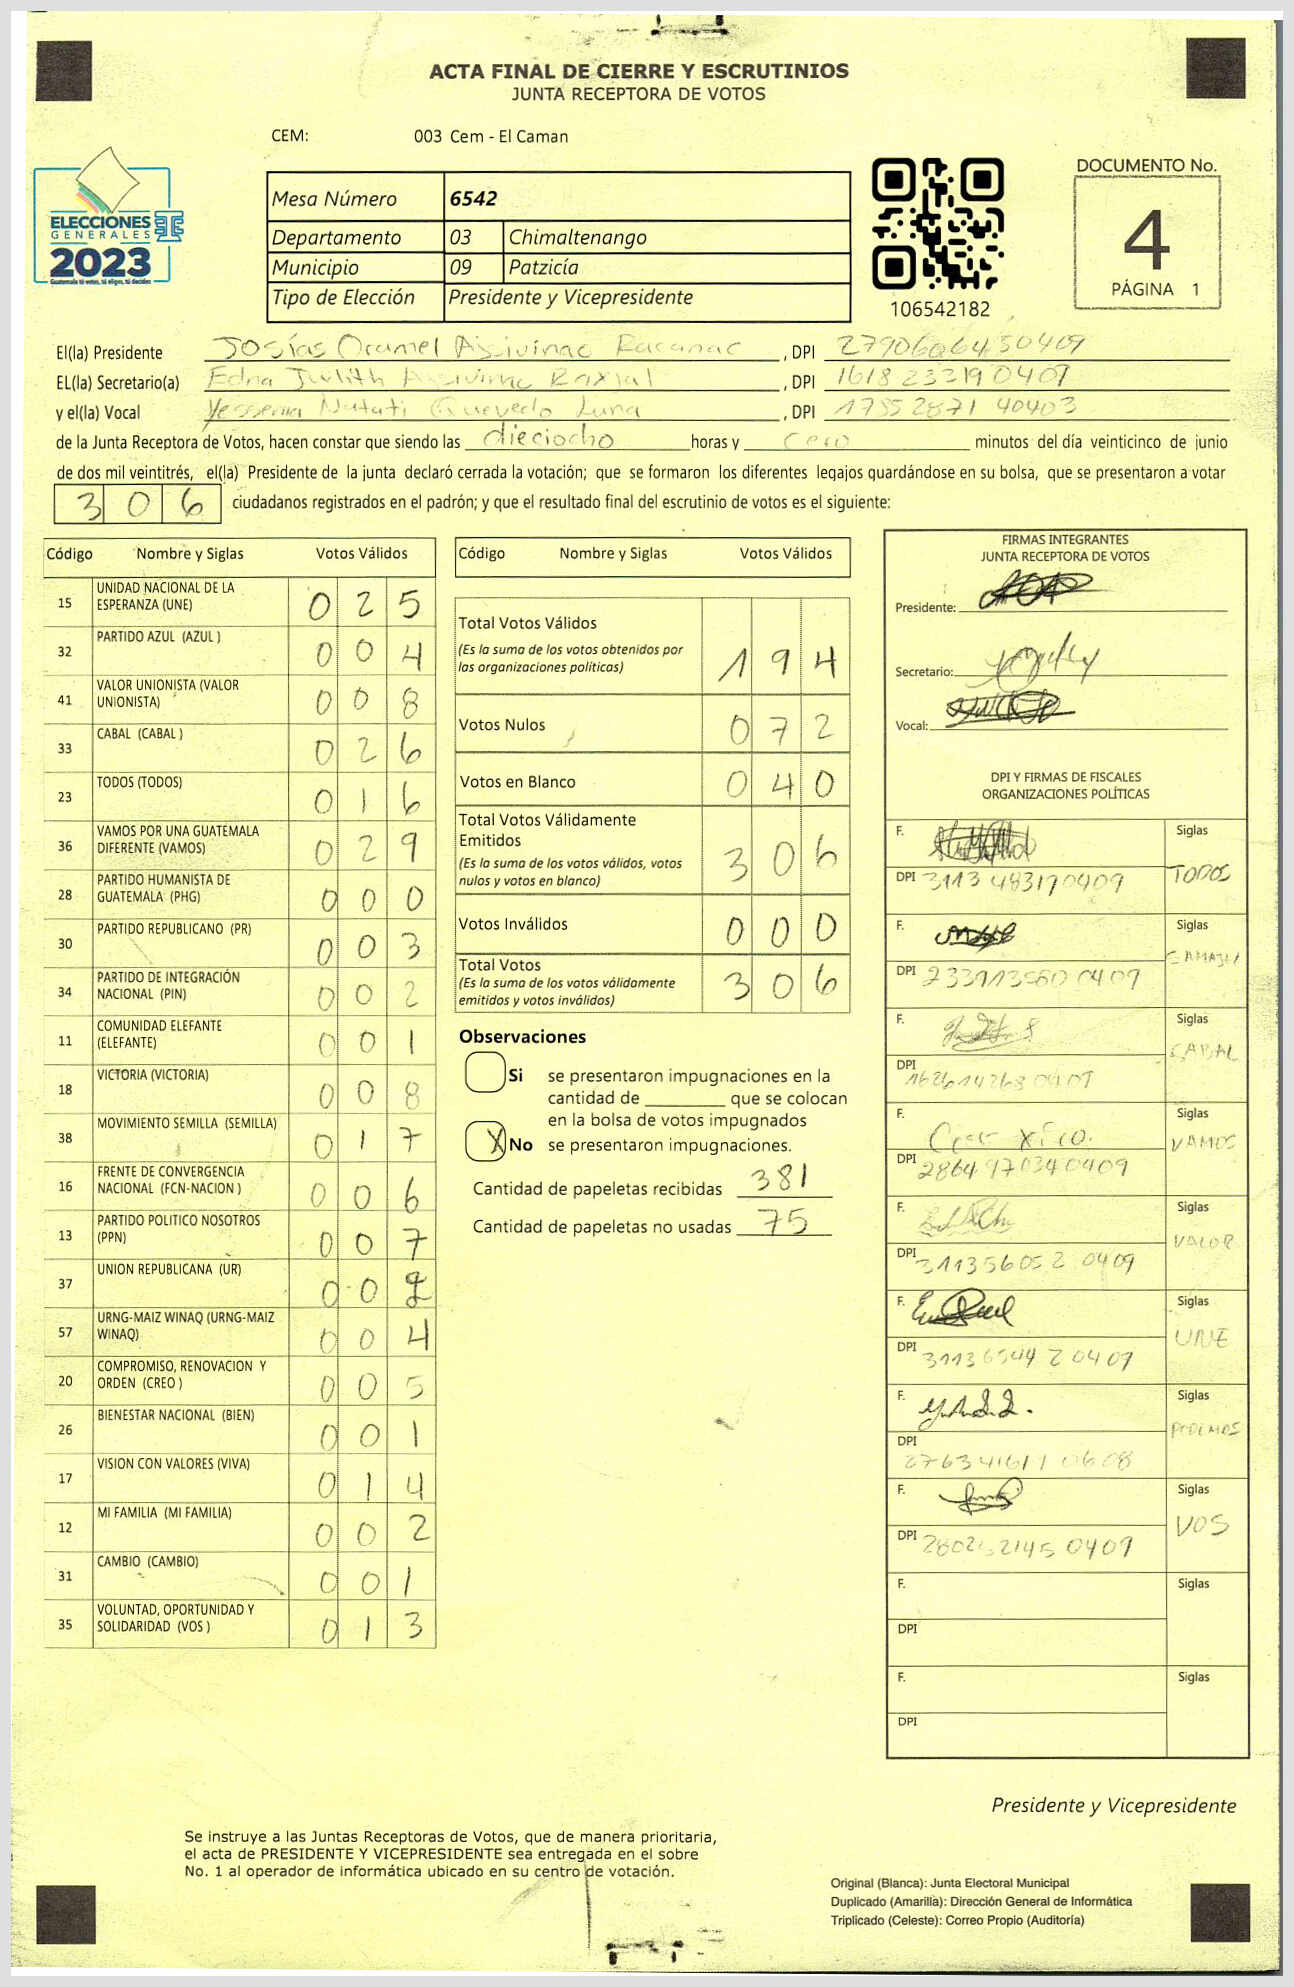 ACTA FINAL DE CIERRE Y ESCRUTINIOS
JUNTA RECEPTORA DE VOTOS
CEM: 003 Cem - El Caman
ELECCIONES
GENERALES
2023
Guatemala tú votas, tú eliges, tú decides
Mesa Número 6542
Departamento 03 Chimaltenango
Municipio 09 Patzicía
Tipo de Elección Presidente y Vicepresidente
106542182
DOCUMENTO No.
4
PÁGINA 1
El(la) Presidente Josías , DPI
EL(la) Secretario(a) Edna Judith , DPI 1618 23319 0409
y el(la) Vocal Yessenia Quevedo Luna , DPI
de la Junta Receptora de Votos, hacen constar que siendo las dieciocho horas y cero minutos del día veinticinco de junio
de dos mil veintitrés, el(la) Presidente de la junta declaró cerrada la votación; que se formaron los diferentes legajos guardándose en su bolsa, que se presentaron a votar
306 ciudadanos registrados en el padrón; y que el resultado final del escrutinio de votos es el siguiente:
Código Nombre y Siglas Votos Válidos
15 UNIDAD NACIONAL DE LA ESPERANZA (UNE) 025
32 PARTIDO AZUL (AZUL ) 004
41 VALOR UNIONISTA (VALOR UNIONISTA) 008
33 CABAL (CABAL ) 026
23 TODOS (TODOS) 016
36 VAMOS POR UNA GUATEMALA DIFERENTE (VAMOS) 029
28 PARTIDO HUMANISTA DE GUATEMALA (PHG) 000
30 PARTIDO REPUBLICANO (PR) 003
34 PARTIDO DE INTEGRACIÓN NACIONAL (PIN) 002
11 COMUNIDAD ELEFANTE (ELEFANTE) 001
18 VICTORIA (VICTORIA) 008
38 MOVIMIENTO SEMILLA (SEMILLA) 017
16 FRENTE DE CONVERGENCIA NACIONAL (FCN-NACION ) 006
13 PARTIDO POLITICO NOSOTROS (PPN) 007
37 UNION REPUBLICANA (UR) 002
57 URNG-MAIZ WINAQ (URNG-MAIZ WINAQ) 004
20 COMPROMISO, RENOVACION Y ORDEN (CREO ) 005
26 BIENESTAR NACIONAL (BIEN) 001
17 VISION CON VALORES (VIVA) 014
12 MI FAMILIA (MI FAMILIA) 002
31 CAMBIO (CAMBIO) 001
35 VOLUNTAD, OPORTUNIDAD Y SOLIDARIDAD (VOS ) 013
Código Nombre y Siglas Votos Válidos
Total Votos Válidos 194
(Es la suma de los votos obtenidos por las organizaciones políticas)
Votos Nulos 072
Votos en Blanco 040
Total Votos Válidamente Emitidos 306
(Es la suma de los votos válidos, votos nulos y votos en blanco)
Votos Inválidos 000
Total Votos 306
(Es la suma de los votos válidamente emitidos y votos inválidos)
Observaciones
Si se presentaron impugnaciones en la
cantidad de ________ que se colocan
en la bolsa de votos impugnados
X No se presentaron impugnaciones.
Cantidad de papeletas recibidas 381
Cantidad de papeletas no usadas 75
FIRMAS INTEGRANTES
JUNTA RECEPTORA DE VOTOS
Presidente:
Secretario:
Vocal:
DPI Y FIRMAS DE FISCALES
ORGANIZACIONES POLÍTICAS
F. Siglas
DPI 3113 48319 0409 TODOS
F. Siglas
DPI
F. Siglas
DPI CABAL
F. Siglas
DPI 2864 97034 0409 VAMOS
F. Siglas
DPI 311356052 0409 VALOR
F. Siglas
DPI UNE
F. Siglas
DPI PODEMOS
F. Siglas
DPI VOS
F. Siglas
DPI
F. Siglas
DPI
Presidente y Vicepresidente
Se instruye a las Juntas Receptoras de Votos, que de manera prioritaria,
el acta de PRESIDENTE Y VICEPRESIDENTE sea entregada en el sobre
No. 1 al operador de informática ubicado en su centro de votación.
Original (Blanca): Junta Electoral Municipal
Duplicado (Amarilla): Dirección General de Informática
Triplicado (Celeste): Correo Propio (Auditoría)